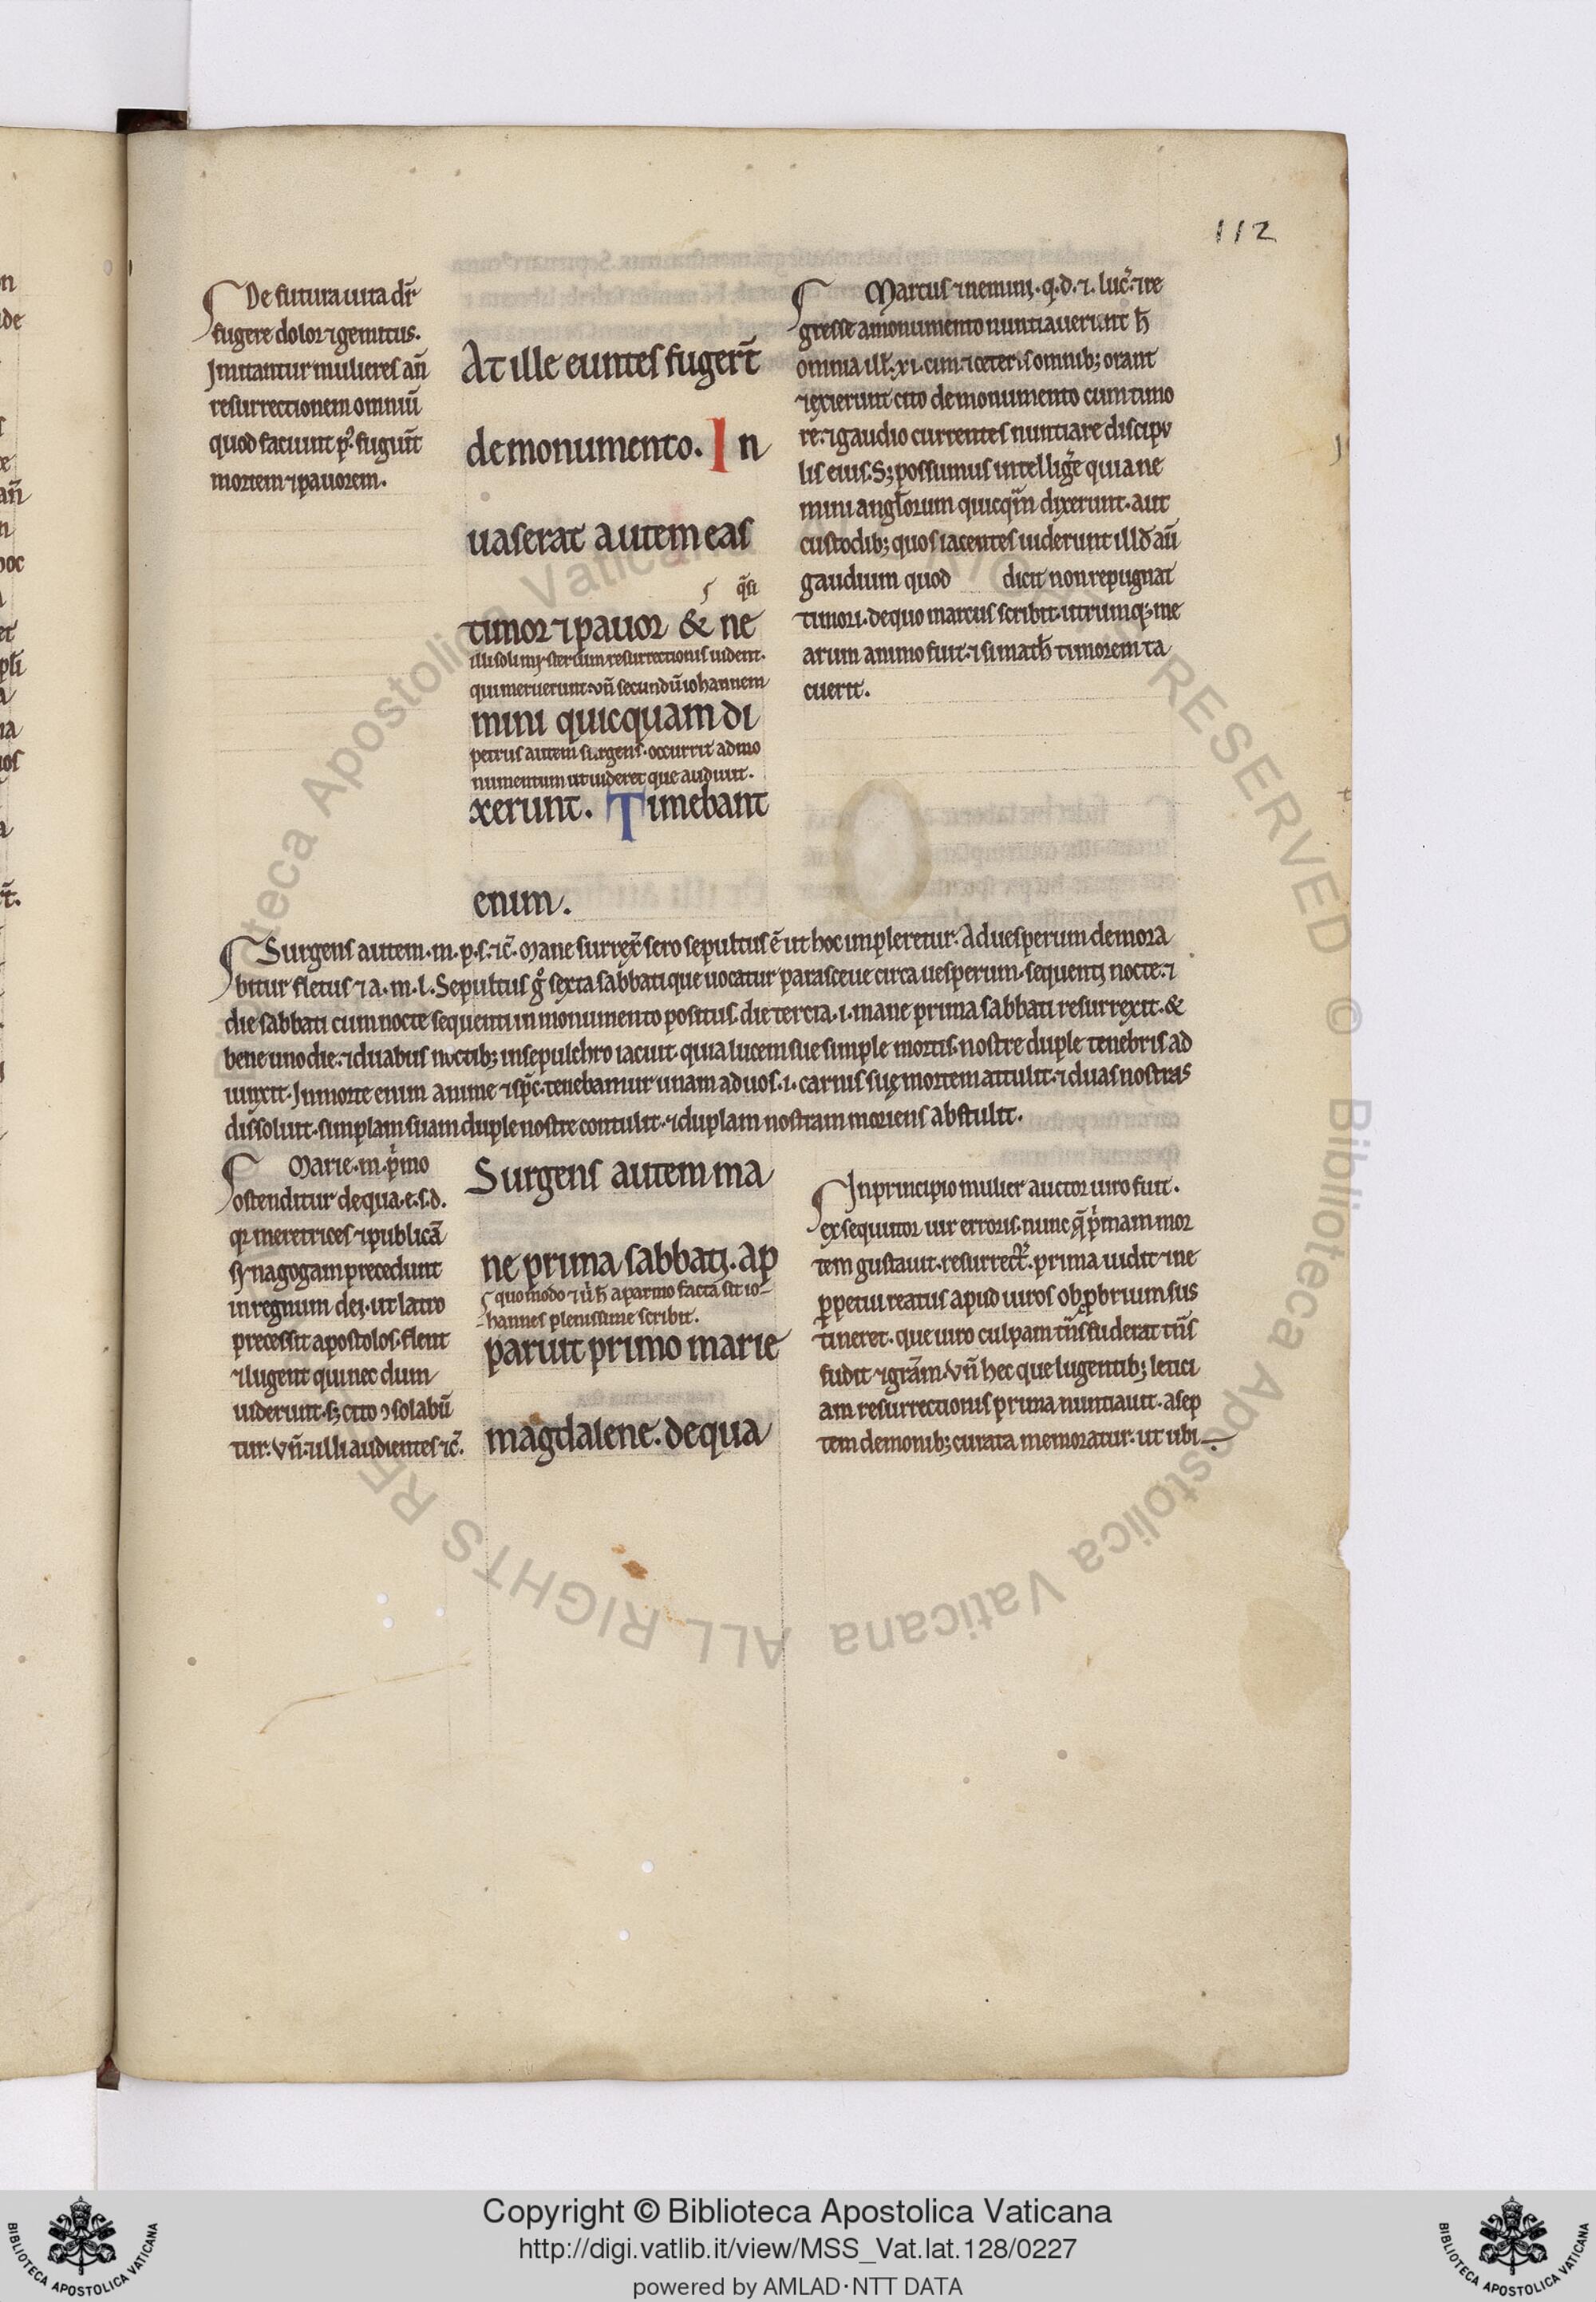 112
De futura uita dr̄
fugere dolor ⁊ gemitus.
Imitantur mulieres an̄
resurrectionem omniū
quod faciunt p⁹. fugiūt
mortem ⁊ pauorem.
At ille euntes fuger̄t
de monumento. In
uaserat autem eas
q̄si
timor ⁊ pauor & ne
illi soli mysterium resurrectionis uident.
qui meruerunt. vn̄ secundū iohannem
mini quicquam di
petrus autem surgens. occurrit ad mo
numentum ut uideret que audiuit.
xerunt. Timebant
enim.
Marcus ⁊ nemini. q. d. ⁊. luc̄. ⁊ re
gresse a monumento nuntiauerunt h̄
omnia ill̄. xi. cim ⁊ ceteris omnib; orant
⁊ exierunt cito de monumento cum timo
re. ⁊ gaudio currentes nuntiare discipu
lis eius. S; possumus intelliḡe quia ne
mini angl̄orum quicq̄m dixerunt. aut
custodib; quos iacentes uiderunt ill̄d aū
gaudium quod dicit non repugnat
timori. de quo marcus scribit. utrumq; me
arum animo fuit. ⁊ si math̄ timorem ta
cuerit.
Surgens autem. m. p. s. ⁊c̄. Mane surrex̄ sero sepultus ē ut hoc impleretur. Ad uesperum demora
bitur fletus ⁊ a. m. l. Sepultus g̊ sexta sabbati que uocatur parasceue circa uesperum. sequenti nocte. ⁊
die sabbati cum nocte sequenti in monumento positus. die tercia. i. mane prima sabbati resurrexit. &
bene uno die. ⁊ duabus noctib; in sepulchro iacuit. quia lucem sue simple mortis nostre duple tenebris ad
iunxit. In morte enim anime ⁊ sp̄c. tenebamur unam ad uos. i. carnis suę mortem attulit. ⁊ duas nostras
dissoluit. simplam suam duple nostre contulit. ⁊ duplam nostram moriens abstulit.
Marie. m. pͥmo
ostenditur de qua. e. s. d.
qr meretrices ⁊ publicā
synagogam precedunt
in regnum dei. ut latro
precessit apostolos. flent
⁊ lugent qui nec dum
uiderunt. s; cito ↄsolabū
tur. vn̄. ⁊ illi audientes ⁊c̄.
Surgens autem ma
ne prima sabbati. ap
quomodo ⁊ u͛ h̄ aparitio facta sit io-
-hannes plenissime scribit.
paruit primo marie
magdalene. de qua
In principio mulier auctor uiro fuit.
exsequitor uir erroris. nunc q̄ pͥmam mor
tem gustauit. resurrect̄. prima uidit ⁊ ne
ꝑpetui reatus apud uiros obꝓbrium sus
tineret. que uiro culpam tn̄sfuderat tn̄s
fudit ⁊ gr̄am. Vn̄ hec que lugentib; letici
am resurrectionis prima nuntiauit. a sep
tem demonib; curata memoratur. ut ubi
Copyright © Biblioteca Apostolica Vaticana
http://digi.vatlib.it/view/MSS_Vat.lat.128/0227
powered by AMLAD·NTT DATA
BIBLIOTECA APOSTOLICA VATICANA
BIBLIOTECA APOSTOLICA VATICANA